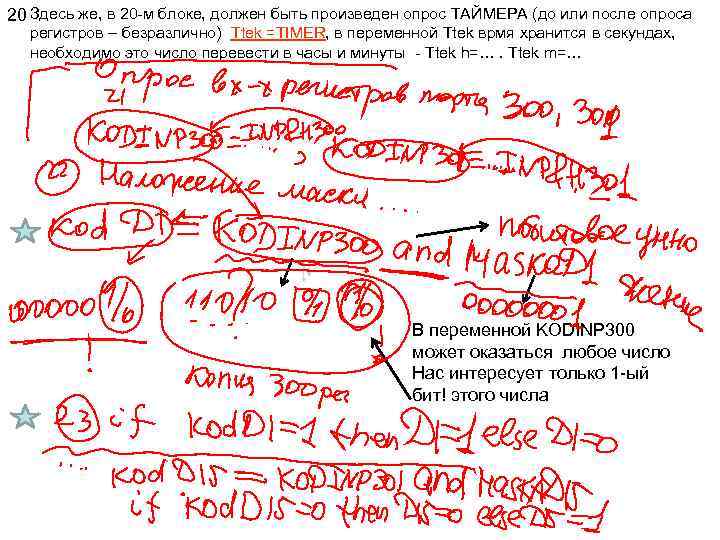 20 Здесь же, в 20-м блоке, должен быть произведен опрос ТАЙМЕРА (до или после опроса
регистров – безразлично) Ttek =TIMER, в переменной Ttek врмя хранится в секундах,
необходимо это число перевести в часы и минуты - Ttek h=… . Ttek m=…
Опрос вх-х регистров порта 300, 301
21
KODINP300=INPⱧ300 ...; KODINP301=...INPⱧ301
22 Наложение маски ....
kod D1 = KODINP300 and MASKOD1 побитовое умножение
00000 1/0 110/10 0/1 1/0 00000001
В переменной KODINP300
может оказаться любое число
Нас интересует только 1-ый
бит! этого числа
копия 300 рег
23 if kodD1=1 then D1=1 else D1=0
... kod D15 = KODINP301 and MaskD15
if kodD15=0 then D15=0 else D15=1